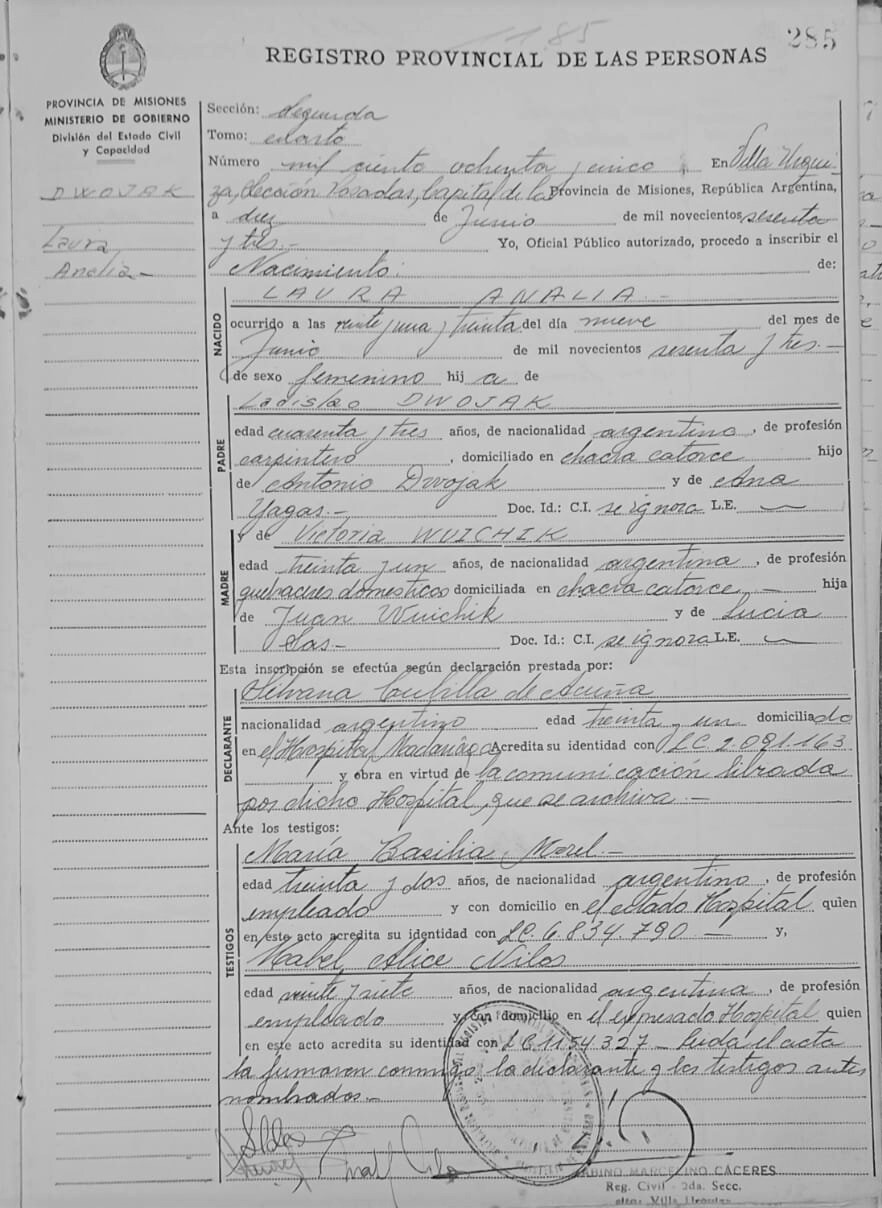 1185
285
REGISTRO PROVINCIAL DE LAS PERSONAS
PROVINCIA DE MISIONES
MINISTERIO DE GOBIERNO
División del Estado Civil
y Capacidad
DWOJAK
Laura
Analia -
Sección: Segunda
Tomo: cuarto
Número mil ciento ochenta y cinco En Villa Urqui-
za, Sección Posadas, Capital de la Provincia de Misiones, República Argentina,
a diez de Junio de mil novecientos sesenta
y tres.- Yo, Oficial Público autorizado, procedo a inscribir el
Nacimiento: de:
LAURA ANALIA.-
NACIDO
ocurrido a las veinte y una y treinta del día nueve del mes de
Junio de mil novecientos sesenta y tres.-
de sexo femenino hij a de
Ladislao DWOJAK
PADRE
edad cuarenta y tres años, de nacionalidad argentino, de profesión
carpintero, domiciliado en chacra catorce hijo
de Antonio Dwojak y de Ana
Yagas.- Doc. Id.: C.I. se ignora L.E. —
y de Victoria WUICHIK
MADRE
edad treinta y un años, de nacionalidad argentina, de profesión
quehaceres domesticos domiciliada en chacra catorce - hija
de Juan Wuichik y de Lucia
Sas.- Doc. Id.: C.I. se ignora L.E. —
Esta inscripción se efectúa según declaración prestada por:
Silvana Cubilla de Acuña
DECLARANTE
nacionalidad argentino edad treinta y un domiciliado
en el Hospital Madariaga Acredita su identidad con LC. 2.091.163
y obra en virtud de la comunicación librada
por dicho Hospital, que se archiva.-
Ante los testigos:
María Basilia Morel.-
TESTIGOS
edad treinta y dos años, de nacionalidad argentino, de profesión
empleado y con domicilio en el citado Hospital quien
en este acto acredita su identidad con LC. 6.834.790 — y,
Mabel Alice Nilos
edad veinte y siete años, de nacionalidad argentina, de profesión
empleado y con domicilio en el expresado Hospital quien
en este acto acredita su identidad con LC. 1154.327 - Leída el acta
la firmaron conmigo la declarante y los testigos antes
nombrados.-
SABINO MARCELINO CÁCERES
Reg. Civil - 2da. Secc.
Villa Urquiza